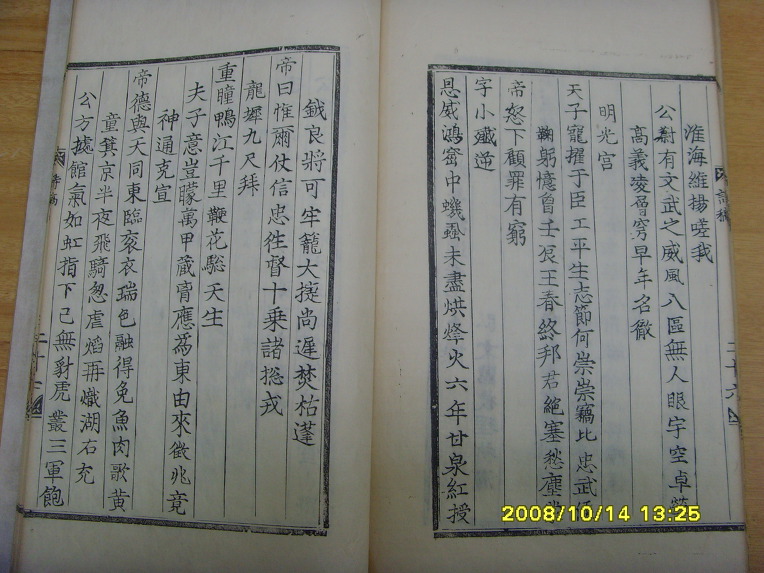 淮海維揚嗟我
公蔚有文武之威風八區無人眼宇空卓犖
高義凌層穹早年名徹
明光宮
天子寵擢于臣工平生志節何崇崇竊比忠武
鞠躬憶曾壬辰王春終邦君絕塞愁塵
帝怒下顧罪有窮
字小殲逆
威鴻宻中蟣蝨未盡烘烽火六年甘泉紅授
鉞良將可牢籠大㨗尚遲焚枯蓬
帝曰惟爾仗信忠徃督十乘諸摠戎
龍墀九尺拜
重瞳鴨江千里鞭花騘天生
夫子意豈矇萬甲藏胷應為東由來徵兆竟
神通克宣
帝德與天同東臨衮衣瑞色融得兔魚肉歌黄
童箕京半夜飛騎怱虐焰再熾湖右充
公方據館氣如虹指下已無豺虎叢三軍飽
二十六
2008/10/14 13:25